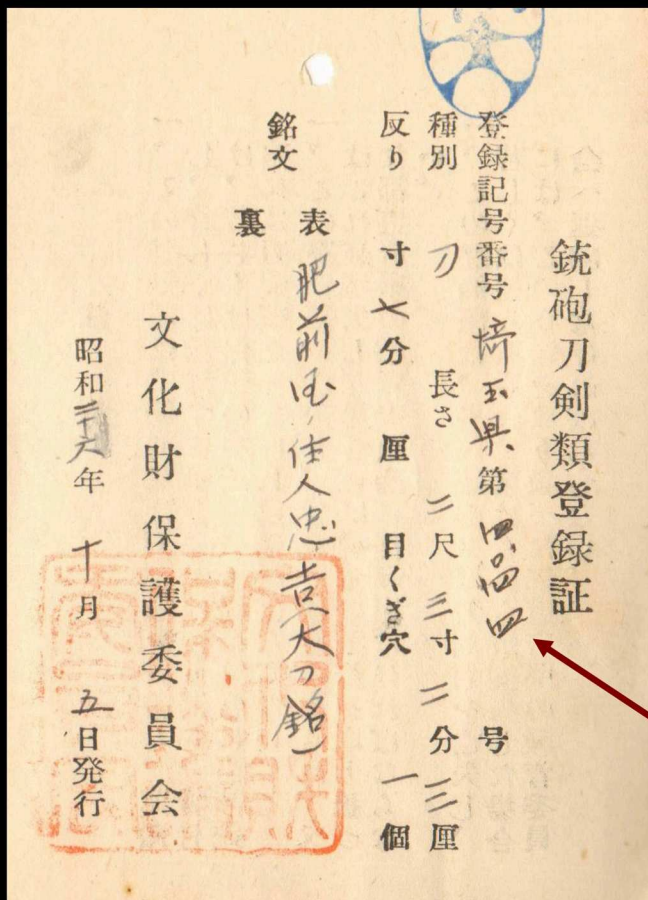 銃砲刀剣類登録証
登録記号番号 埼玉県第 四〇四四 号
種別 刀 長さ 二尺 三寸 二分 三厘
反り 寸 七分 厘 目くぎ穴 一個
銘文
表 肥前国住人忠吉(大刀銘)
裏
文化財保護委員会
昭和三十六年 十月 五日発行